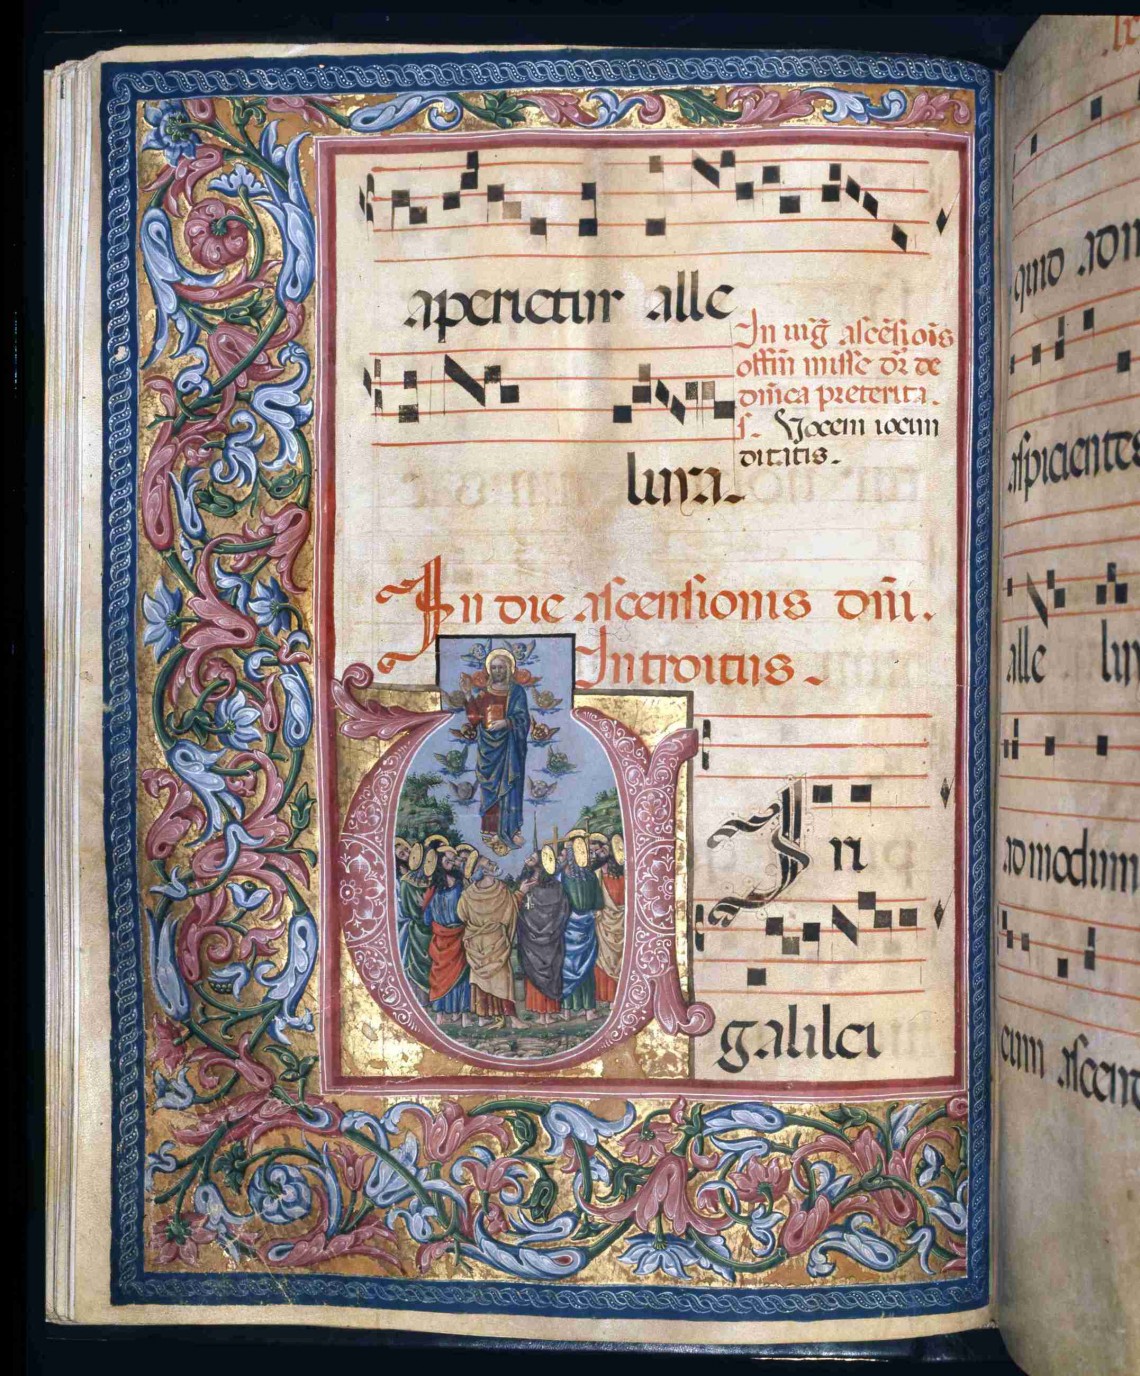 aperietur alle
In uig̃ ascẽsiois̃
offm̃ misse dr̃ de
dm̃ica preterita.
f. Vocem iocun
ditatis.
luya.
In die ascensionis dn̄i.
Introitus.
V
In
galilei
quid adm
aspicientes
alle lu
ad modum
eum ascen